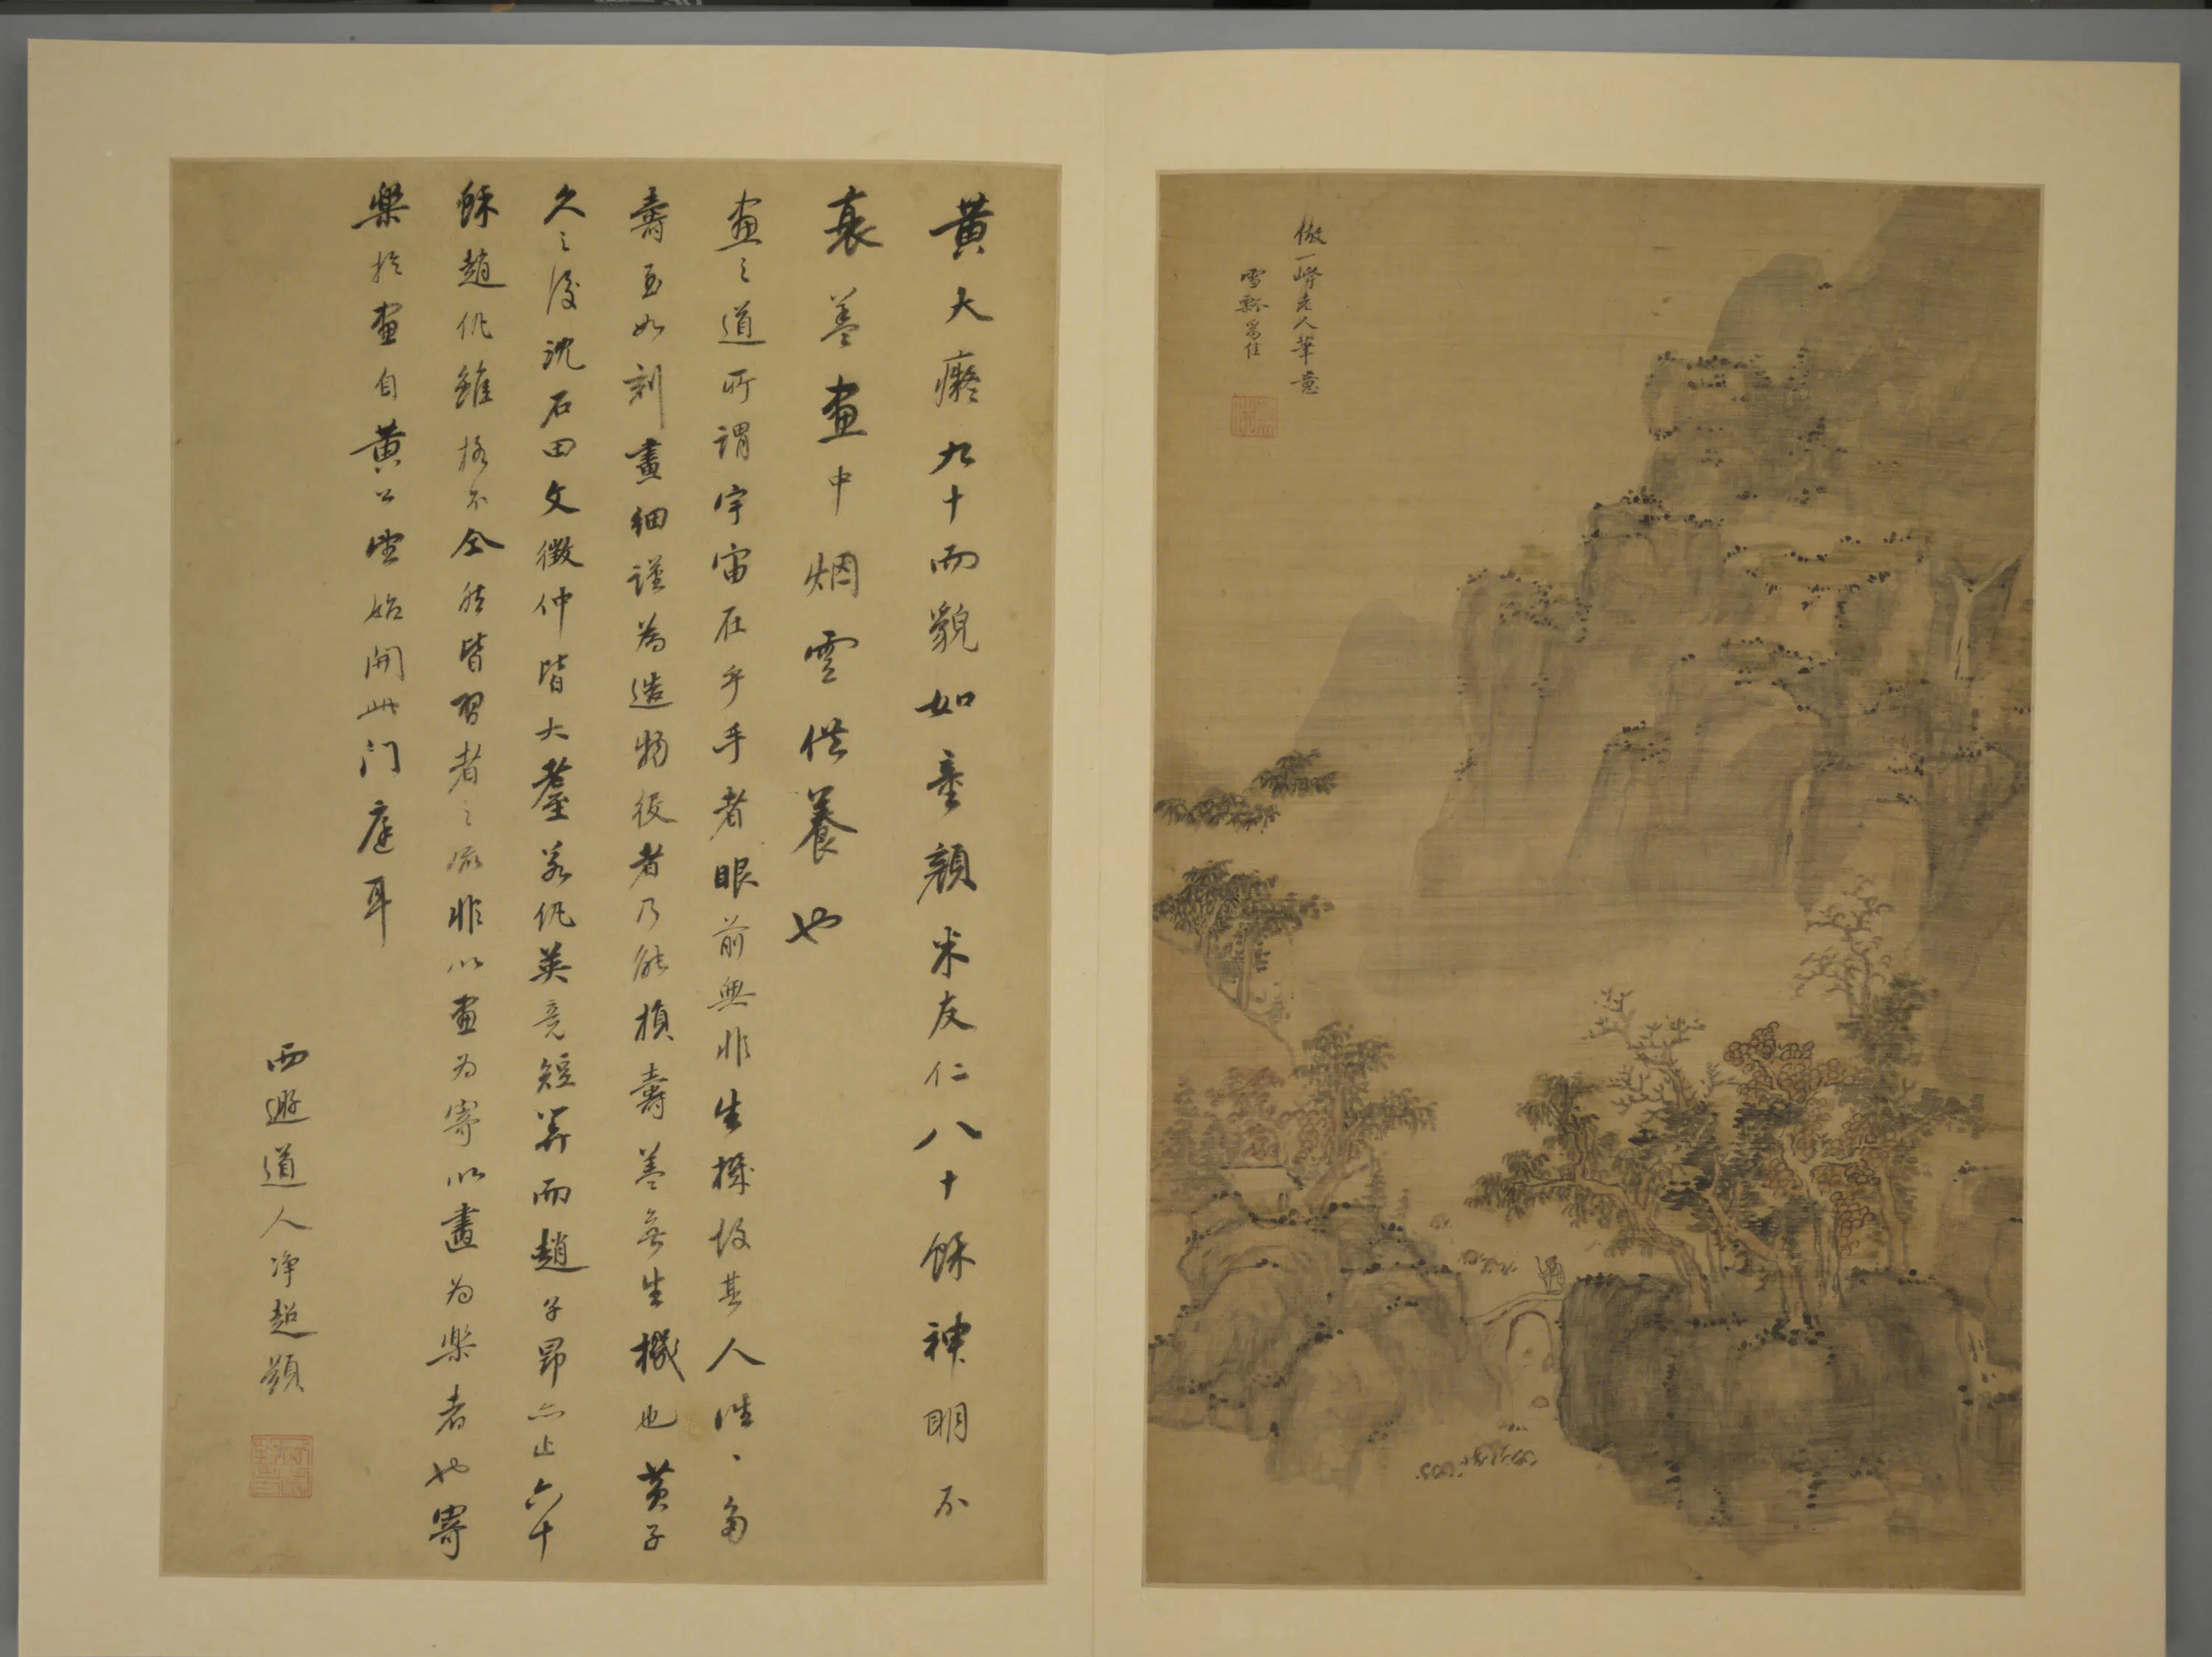 倣一峰老人筆意
雪瓢
黃大癡九十而貌如童顏米友仁八十餘神明不
衰蓋畫中烟雲供養也
畫之道所謂宇宙在乎手者眼前無非生機故其人往丶多
壽至如刻畫細謹為造物役者乃能損壽蓋無生機也黃子
久之後沈石田文徵仲皆大耋若仇英竟短筭而趙子昂亦止六十
餘趙仇雖格不仝然皆習者之流非以畫為寄以畫為樂者也寄
樂於畫自黃公望始開此門庭耳
西遯道人净超題